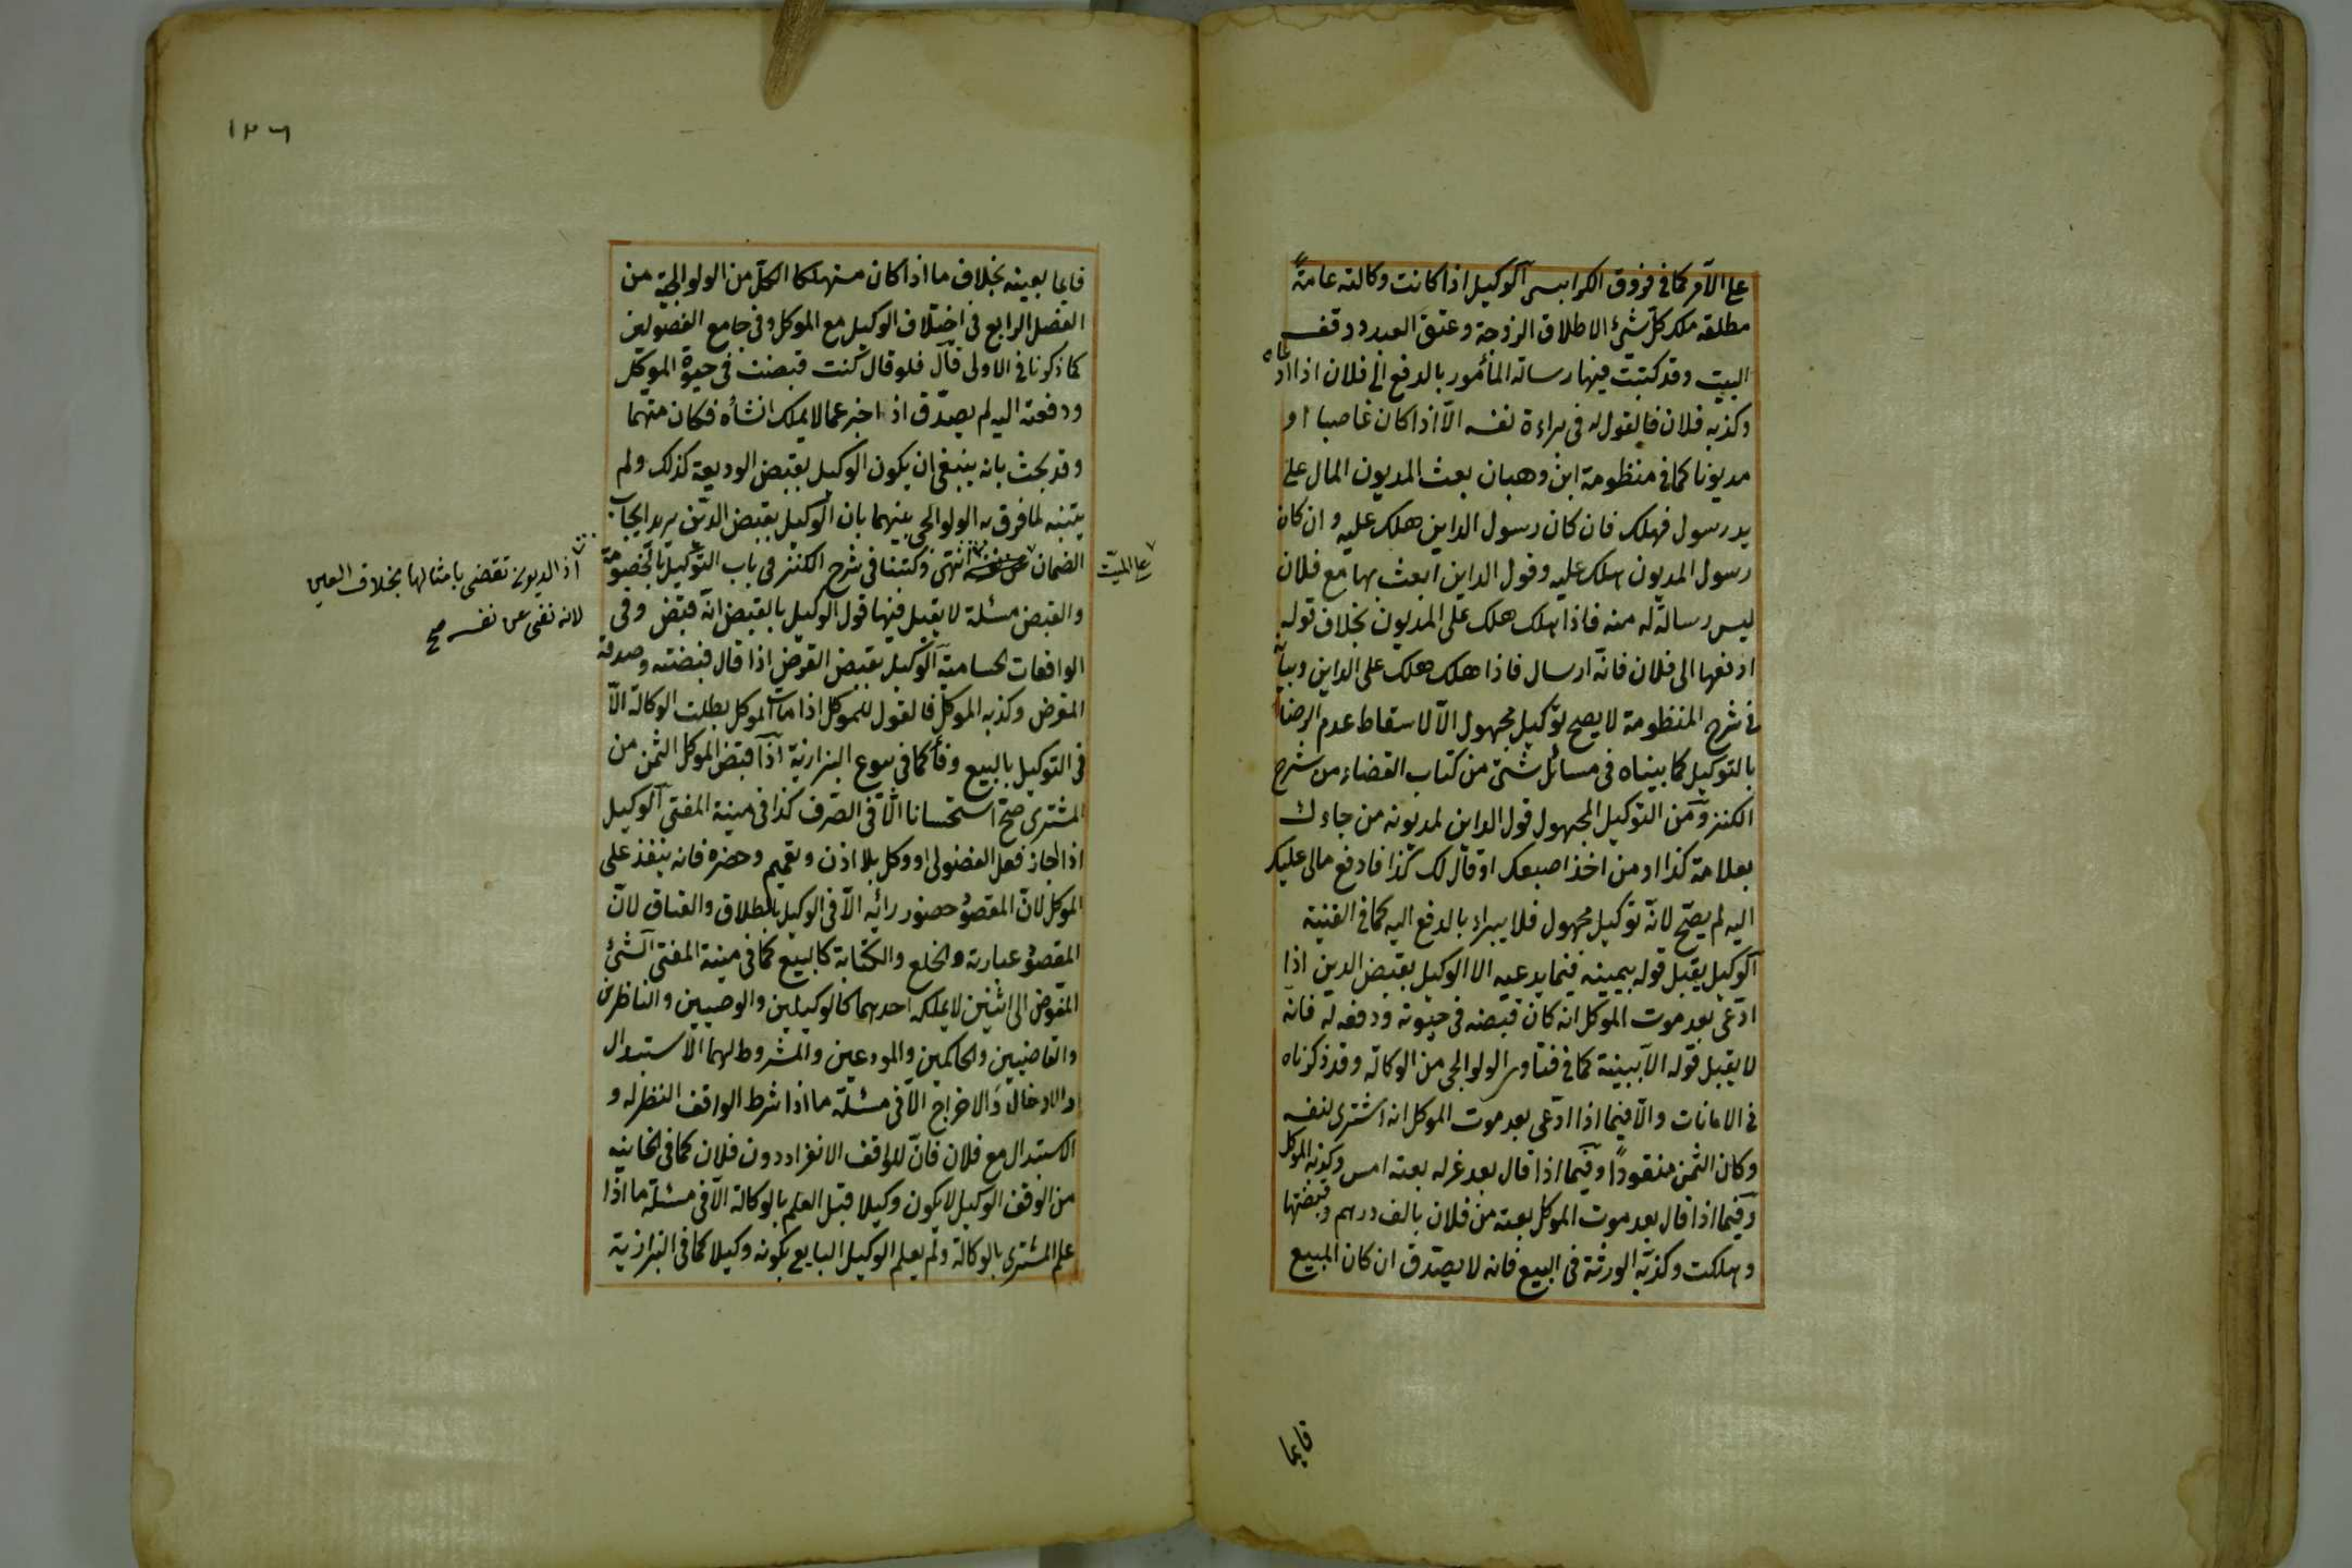 على الآمر كما في فروق الكرابيسي الوكيل اذا كانت وكالته عامةً
مطلقة ملك كل شئ الا طلاق الزوجة وعتق العبد ووقف
البيت وقد كتبت فيها رسالة المأمور بالدفع الى فلان اذا ادعاه
وكذبه فلان فالقول له في براءة نفسه الا اذا كان غاصبا او
مديونا كما في منظومة ابن وهبان بعث المديون المال على
يد رسول فهلك فان كان رسول الداين هلك عليه وان كان
رسول المديون هلك عليه وقول الداين ابعث بها مع فلان
ليس رسالة له منه فاذا هلك هلك على المديون بخلاف قوله
ادفعها الى فلان فانه ارسال فاذا هلك هلك على الداين وبيانه
في شرح المنظومة لا يصح توكيل مجهول الا لاسقاط عدم الرضا
بالتوكيل كما بيناه في مسائل شتى من كتاب القضاء من شرح
الكنز ومن التوكيل المجهول قول الداين لمديونه من جاءك
بعلامة كذا او من اخذ اصبعك او قال لك كذا فادفع مالي عليك
اليه لم يصح لانه توكيل مجهول فلا يبراء بالدفع اليه كما في القنية
الوكيل يقبل قوله بيمينه فيما يدعيه الا الوكيل بقبض الدين اذا
ادعى بعد موت الموكل انه كان قبضه في حيوته ودفعه له فانه
لا يقبل قوله الا ببينة كما في فتاوى الولوالجي من الوكالة وقد ذكرناه
في الامانات والا فيما اذا ادعى بعد موت الموكل انه اشترى لنفسه
وكان الثمن منقودًا وفيما اذا قال بعد عزله بعته امس وكذبه الموكل
وفيما اذا قال بعد موت الموكل بعته من فلان بالف درهم وقبضتها
وهلكت وكذبه الورثة في البيع فانه لا يصدق ان كان المبيع
قايما
١٢٦
قايما بعينه بخلاف ما اذا كان مستهلكا الكل من الولوالجية من
الفصل الرابع في اختلاف الوكيل مع الموكل وفي جامع الفصولين
كما ذكرنا في الاولى قال فلو قال كنت قبضت في حيوة الموكل
ودفعته اليه لم يصدق اذ اخبر عما لا يملك انشاه فكان متهما
وقد بحث بانه ينبغي ان يكون الوكيل بقبض الوديعة كذلك ولم
يتنبه لما فرق به الولوالجي بينهما بان الوكيل بقبض الدين يريد ايجاب
الضمان انتهى وكتبنا في شرح الكنز في باب التوكيل بالخصومة
على الميت
اذ الديون تقضى بامثالها بخلاف العين
لانه نفى عن نفسه صح
والقبض مسئلة لا يقبل فيها قول الوكيل بالقبض انه قبض وفي
الواقعات الحسامية الوكيل بقبض القرض اذا قال قبضته وصدقه
المقرض وكذبه الموكل فالقول للموكل اذا مات الموكل بطلت الوكالة الا
في التوكيل بالبيع وفأ كما في بيوع البزازية اذا قبض الموكل الثمن من
المشتري صح استحسانا الا في الصرف كذا في منية المفتي الوكيل
اذا اجاز فعل الفضولي او وكل بلا اذن وتعميم وحضره فانه ينفذ على
الموكل لان المقصود حضور رائه الا في الوكيل بالطلاق والعتاق لان
المقصود عبارته والخلع والكتابة كالبيع كما في منية المفتي الشئ
المفوض الى اثنين لا يملكه احدهما كالوكيلين والوصيين والناظرين
والقاضيين والحاكمين والمودعين والمشروط لهما الاستبدال
والادخال والاخراج الا في مسئلة ما اذا شرط الواقف النظر له و
الاستبدال مع فلان فان للواقف الانفراد دون فلان كما في الخانيه
من الوقف الوكيل لا يكون وكيلا قبل العلم بالوكالة الا في مسئلة ما اذا
علم المشتري بالوكالة ولم يعلم الوكيل البايع بكونه وكيلا كما في البزازية